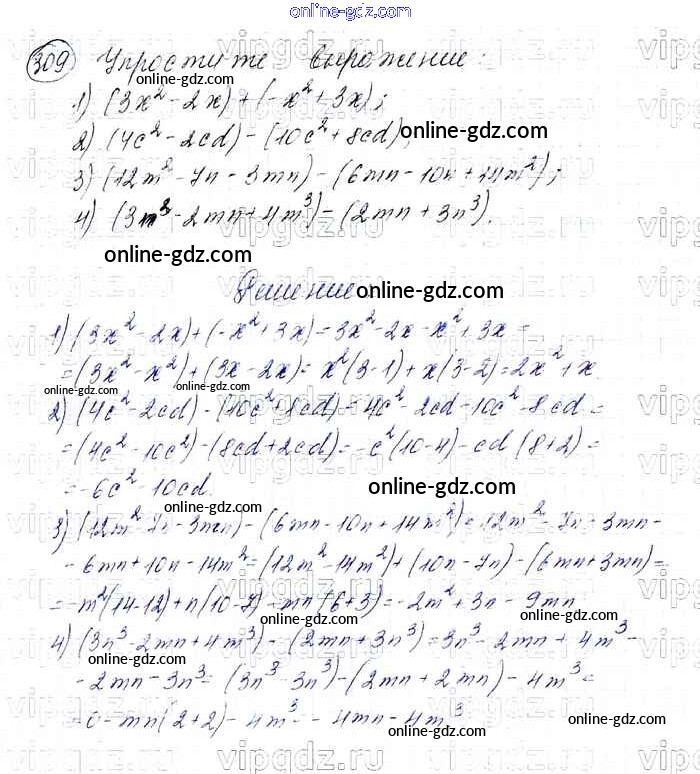 online-gdz.com
309 Упростите выражение:
online-gdz.com
1) (3x² - 2x) + (-x² + 3x);
2) (4c² - 2cd) - (10c² + 8cd);
online-gdz.com
3) (12m² - 7n - 3mn) - (6mn - 10n + 14m²);
4) (3n³ - 2mn + 4m³) - (2mn + 3n³).
online-gdz.com
Решение
online-gdz.com
1) (3x² - 2x) + (-x² + 3x) = 3x² - 2x - x² + 3x =
= (3x² - x²) + (3x - 2x) = x²(3-1) + x(3-2) = 2x² + x.
online-gdz.com online-gdz.com
2) (4c² - 2cd) - (10c² + 8cd) = 4c² - 2cd - 10c² - 8cd =
= (4c² - 10c²) - (8cd + 2cd) = -c²(10-4) - cd(8+2) =
= -6c² - 10cd.
online-gdz.com
3) (12m² - 7n - 3mn) - (6mn - 10n + 14m²) = 12m² - 7n - 3mn -
- 6mn + 10n - 14m² = (12m² - 14m²) + (10n - 7n) - (6mn + 3mn) =
= -m²(14-12) + n(10-7) - mn(6+3) = -2m² + 3n - 9mn
online-gdz.com online-gdz.com
4) (3n³ - 2mn + 4m³) - (2mn + 3n³) = 3n³ - 2mn + 4m³ -
online-gdz.com
- 2mn - 3n³ = (3n³ - 3n³) - (2mn + 2mn) - 4m³ =
online-gdz.com
= 0 - mn(2+2) - 4m³ = - 4mn - 4m³
online-gdz.com online-gdz.com
vipgdz.com